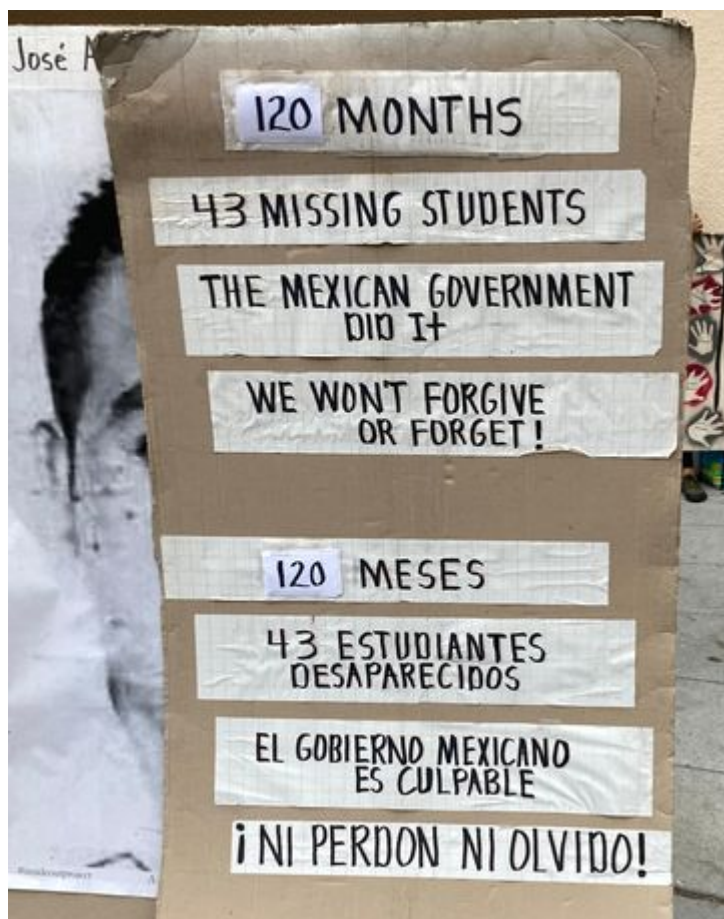 José
120 MONTHS
43 MISSING STUDENTS
THE MEXICAN GOVERNMENT
DID It
WE WON'T FORGIVE
OR FORGET!
120 MESES
43 ESTUDIANTES
DESAPARECIDOS
EL GOBIERNO MEXICANO
ES CULPABLE
¡NI PERDON NI OLVIDO!